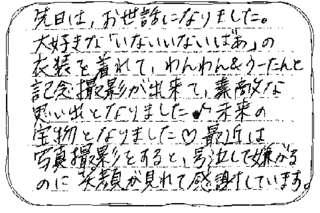 先日は、お世話になりました。
大好きな「いないいないばあ」の
衣装を着れて、わんわん&うーたんと
記念撮影が出来て、素敵な
思い出となりました♪未来の
宝物となりました♡最近は
写真撮影をすると、号泣して嫌がる
のに笑顔が見れて感謝しています。